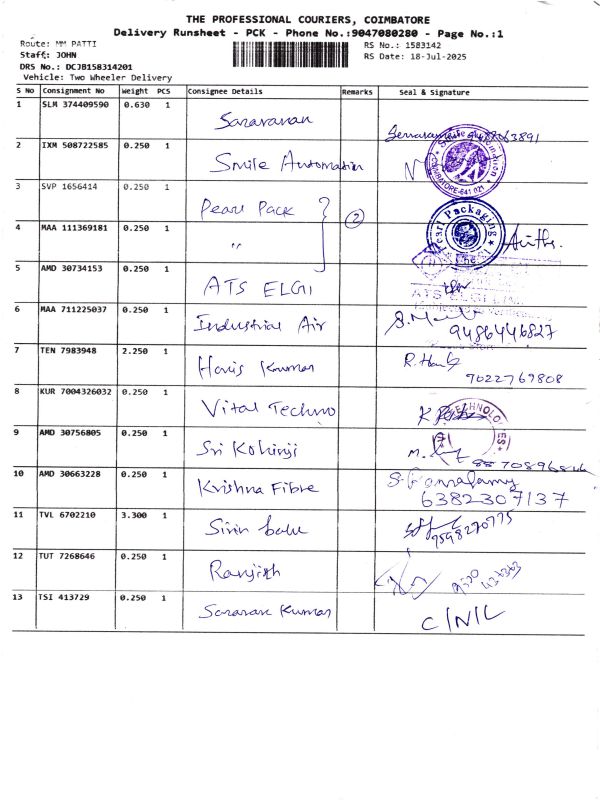 THE PROFESSIONAL COURIERS, COIMBATORE
Delivery Runsheet - PCK - Phone No.:9047080280 - Page No.:1
Route: MM PATTI
RS No.: 1583142
Staff: JOHN
RS Date: 18-Jul-2025
DRS No.: DCJB158314201
Vehicle: Two Wheeler Delivery
S No Consignment No Weight PCS Consignee Details Remarks Seal & Signature
1 SLM 374409590 0.630 1 Saravanan
2 IXM 508722585 0.250 1 Smile Automation
3 SVP 1656414 0.250 1 Pearl Pack
4 MAA 111369181 0.250 1 " 2 Pearl Packaging
5 AMD 30734153 0.250 1 ATS ELGI
6 MAA 711225037 0.250 1 Industrial Air 9486446827
7 TEN 7983948 2.250 1 Haris Kumar 9022769808
8 KUR 7004326032 0.250 1 Vital Techno
9 AMD 30756805 0.250 1 Sri Kohinji
10 AMD 30663228 0.250 1 Krishna Fibre 6382307137
11 TVL 6702210 3.300 1 9598270775
12 TUT 7268646 0.250 1 Ranjith
13 TSI 413729 0.250 1 Saravan Kumar C/N/L